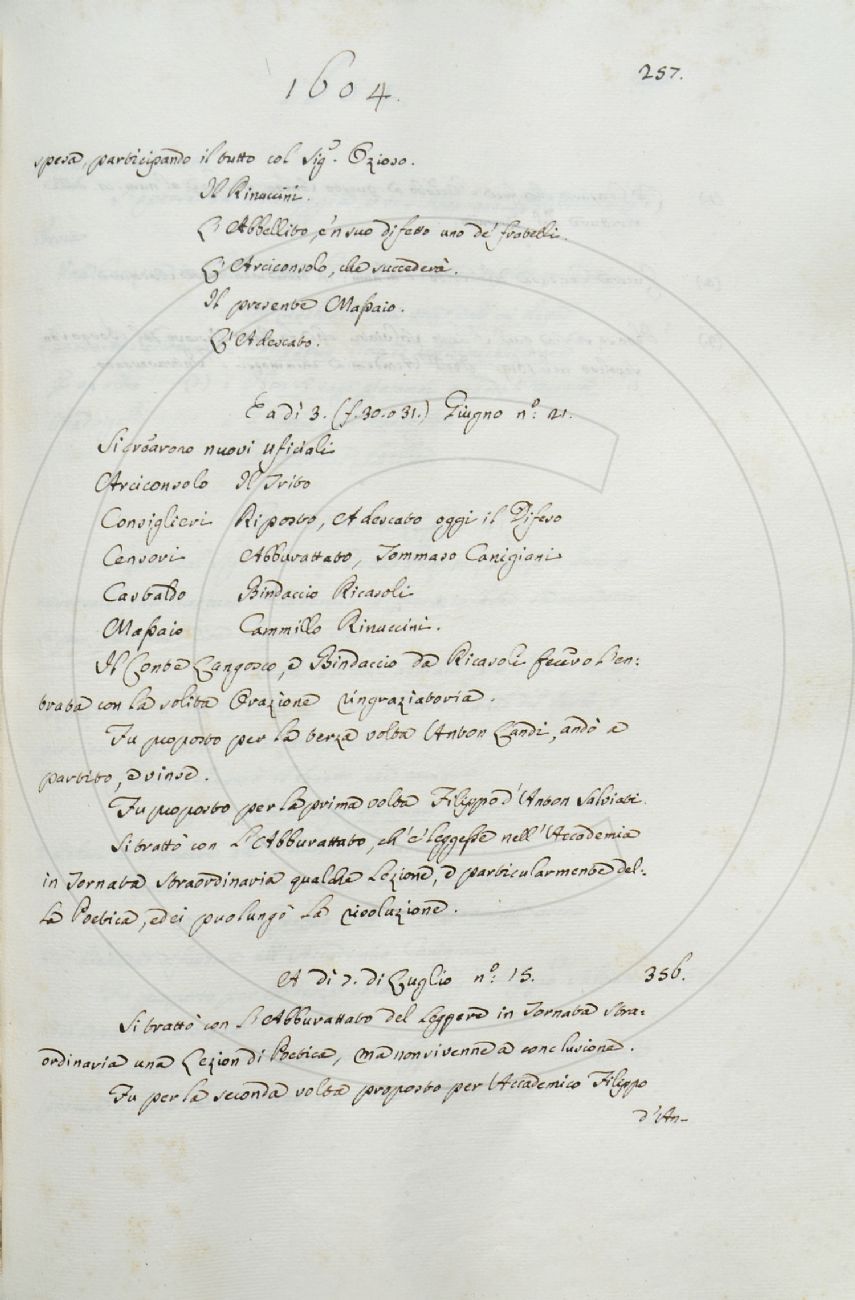 1604.
257.
spesa, participando il tutto col Sig.r Ozioso.
Il Rinuccini.
L'Abbellito, e 'n suo difetto uno de' fratelli.
L'Arciconsolo, che succederà.
Il presente Massaio.
L'Adescato.
E a dì 3. (f. 30. o 31.) Giugno n.o: 21.
Si crearono nuovi uficiali
Arciconsolo Il Trito
Consiglieri Riposto, Adescato oggi il Difeso
Censori Abburattato, Tommaso Canigiani
Castaldo Bindaccio Ricasoli
Massaio Cammillo Rinuccini.
Il Conte Langosco, e Bindaccio da Ricasoli fecero l'en:
trata con la solita Orazione ringraziatoria.
Fu proposto per la terza volta l'Anton Landi, andò a
partito, e vinse.
Fu proposto per la prima volta Filippo d'Anton Salviati.
Si trattò con l'Abburattato, ch'e' leggesse nell'Accademia
in Tornata straordinaria qualche Lezione, e particularmente del:
la Poetica, ed ei prolungò la risoluzione.
A dì 7. di Luglio n.o: 15.
356.
Si trattò con l'Abburattato del leggere in Tornata stra:
ordinaria una Lezion di Poetica, ma non si venne a conclusione.
Fu per la seconda volta proposto per l'Accademico Filippo
d'An-